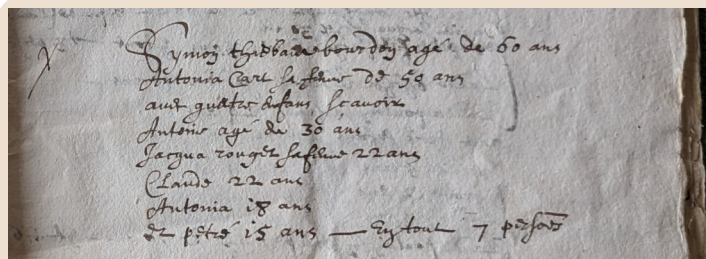 Symon thiebau de bourdon agé de 60 ans
Antonia Cart sa feme de 50 ans
avec quattre enfans scavoir
Antoine agé de 30 ans
Jacqua rouget sa feme 22 ans
Claude 22 ans
Antonia 18 ans
et petre 15 ans — En tout 7 persoes